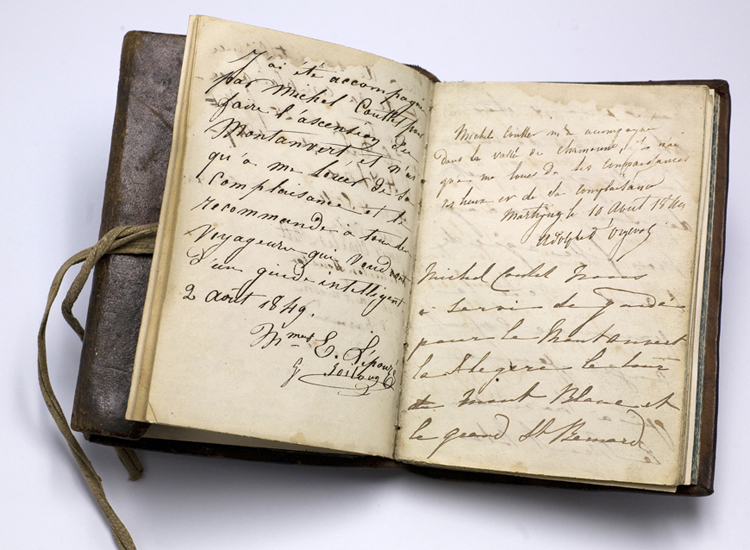 J'ai été accompagné
par Michel Couttet pour
faire l'ascension du
Montanvert et n'ai
qu'a me louer de sa
complaisance et le
recommande à tous les
Voyageurs qui voudront
d'un guide intelligent
2 août 1849.
E.
Michel Couttet m'a acompagné
dans la vallée de chamounix, je n'ai
qu'a me louer de ses
et de sa complaisance
Martigny le 10 Août
Adolphe
Michel Couttet Nous
a servi de guide
pour le Montanvert
la flegere le tour
Mont Blanc et
le grand St Bernard